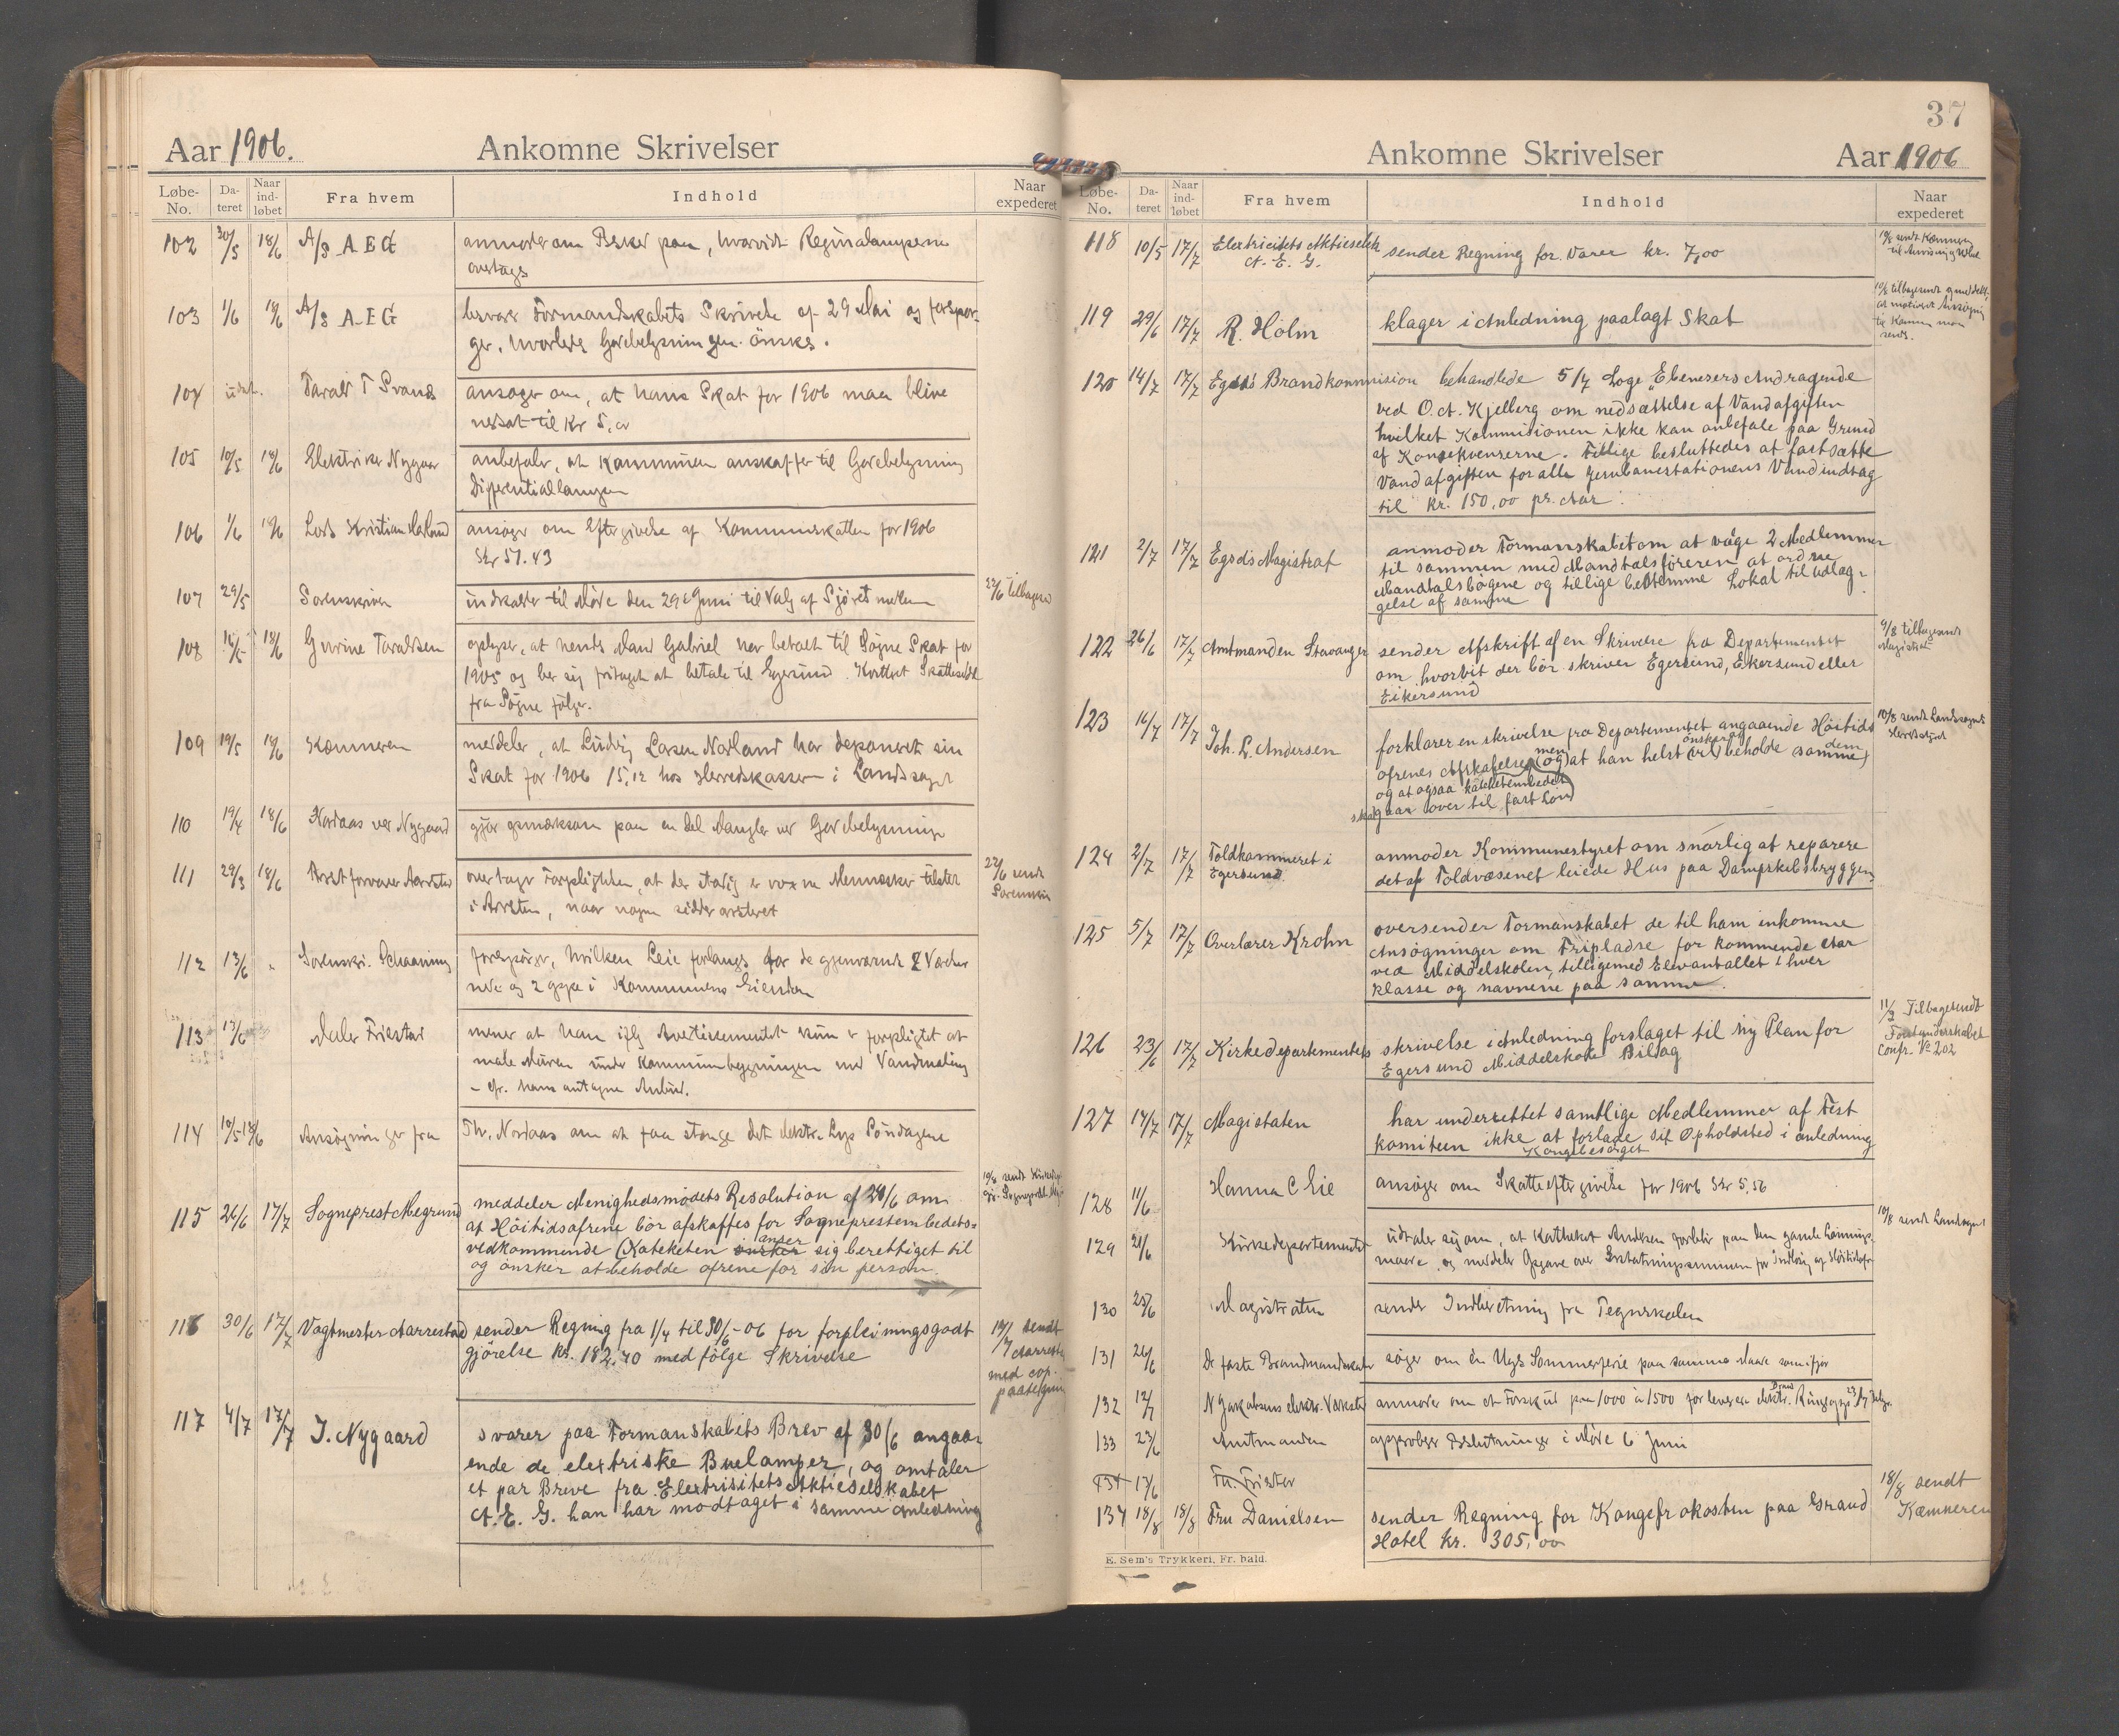 Aar 1906. Ankomne Skrivelser
Løbe-No. Dateret Naar indløbet Fra hvem Indhold Naar expederet
102 30/5 18/6 A/S A E G anmoder om Besked paa, hvorvidt Reginalamperne
overtages
103 1/6 18/6 A/S A.E.G besvarer Formandskabets Skrivelse af 29 Mai og forespør-
ger, hvorledes Gadebelysningen önskes.
104 udat. Tarald T Svanes ansøger om, at hans Skat for 1906 maa blive
nedsat til Kr 5,00
105 10/5 18/6 Elektriker Nygaard anbefaler, at Kommunen anskaffer til Gadebelysning
Differentiallampen
106 1/6 18/6 Lods Kristian ansøger om Eftergivelse af Kommuneskatten for 1906
Kr 51.43
107 29/5 Sorenskriveren indkalder til Møde den 29de Juni til Valg af Sjöretsmedlem 22/6 tilbagesendt
108 18/6 Gurine Taraldsen oplyser, at hendes Mand Gabriel har betalt til Sogne Skat for
1905 og ber sig fritaget at betale til Egersund. Kvitteret Skatteseddel
fra Sogne følger.
109 19/5 18/6 Kæmneren meddeler, at Ludvig Larsen Nodland har deponeret sin
Skat for 1906 15,12 hos Herredskassen i Landsognet
110 19/4 18/6 Nodaas ved Nygaard gjør opmærksom paa en Del Mangler ved Gadebelysningen
111 29/3 18/6 Arrestforvarer Aarrestad overtager Forpligtelsen, at der stadig er voxne Mennesker tilstede
i Arresten, naar nogen sidder arresteret
22/6 sendt
Sorenskriv
112 13/6 " Sorenskr. Schaanning forespørger, hvilken Leie forlanges for de gjenværende 2 Værelser
nede og 2 oppe i Kommunens Eiendom
113 13/6 Maler Friestad mener at han ifølge Avertissementet kun er forpligtet at
male Muren under Kommunebygningen med Vandmaling
- cfr. hans antagne Anbud.
114 10/5 18/6 Ansøgninger fra Th. Nodaas om at faa stænge det elektr. Lys Söndagene
115 26/6 17/7 Sogneprest Megrund meddeler Menighedsmödets Resolution af 24/6 om
at Höitidsofrene bör afskaffes for Sogneprestembedets-
vedkommende (Kateketen önsker anser sig berettiget til
og önsker at beholde ofrene for sin person.
116 30/6 17/7 Vagtmester Aarrestad sender Regning fra 1/4 til 30/6-06 for forpleiningsgodt
gjörelse kr. 182,40 med fölge Skrivelse
19/7 sendt
Aarrestad
med cop.
paategning
117 4/7 17/7 J. Nygaard svarer paa Formanskabets Brev af 30/6 angaa-
ende de elextriske Buelamper, og omtaler
et par Breve fra Elextrisitets Aktieselskabet
A. E. G. han har modtaget i samme anledning
37
Ankomne Skrivelser Aar 1906
Løbe-No. Dateret Naar indløbet Fra hvem Indhold Naar expederet
118 10/5 17/7 Elextricitets Aktieselsk.
A. E. G. sender Regning for Varer kr. 7,00
10/8 sendt Kæmneren
til Anvisning
119 29/6 17/7 R. Holm klager i Anledning paalagt Skat
10/8 tilbagesendt og meddelt,
at motiveret Ansøgning
sendes.
120 14/7 17/7 Egsds Brandkommision behandlede 5/7 Loge "Ebenesers Andragende
ved O. A. Kjelberg om nedsættelse af Vandafgiften
hvilket Kommisionen ikke kan anbefale paa Grund
af Konsekvenserne. Tillige besluttedes at fastsætte
Vandafgiften for alle Jernbanestationens Vandindtag
til kr. 150,00 pr. Aar.
121 2/7 17/7 Egsds Magistrat anmoder Formanskabet om at vælge 2 Medlemmer
til sammen med Mandtalsföreren at ordne
Mandtalsbögene og tillige bestemme Lokal til udlæg-
gelse af samme
122 26/6 17/7 Amtmanden Stavanger sender Afskrift af en Skrivelse fra Departementet
om hvorvidt der bör skrives Egersund, Ekersund eller
Eikersund
9/8 tilbagesendt
Magistrat
123 16/7 17/7 Joh. L. Andersen forklarer en skrivelse fra Departementet angaaende Höitids
ofrenes Afskaffelse men og at han helst önsker at vil beholde samme dem
og at ogsaa kateketembedet
skal gaa over til fast Lön
10/8 sendt Landsognets
Herredstyret
124 2/7 17/7 Toldkammeret i
Egersund. anmoder Kommunestyret om snarlig at reparere
det af Toldvæsenet leiede Hus paa Dampskibsbryggen
125 5/7 17/7 Overlærer Krohn oversender Formanskabet de til ham inkomne
Ansögninger om Fripladse for kommende Aar
ved Middelskolen, tilligemed Elevantallet i hver
klasse og navnene paa samme.
126 23/6 17/7 Kirkedepartementets skrivelse i Anledning forslaget til ny Plan for
Egersund Middelskole Bilag
Tilbagesendt
Forstanderskabet
Confr. No 202
127 14/7 17/7 Magistaten har underrettet samtlige Medlemmer af Fest
komiteen ikke at forlade sit Opholdsted i anledning
Kongebesöget
128 11/6 Hanna C Eie ansøger om Skatteeftergivelse for 1906 Kr 5,56
129 21/6 Kirkedepartementet udtaler sig om, at Katheket Andersen forblir paa den gamle Lønnings-
maade, og meddeler Opgave over Erstatningssummen for Indløsning af Høitidsofr.
10/8 sendt Landsognet
130 25/6 Magistraten sender Indberetning fra Tegneskolen
131 26/6 De faste Brandmandskaber søger om en Uges Sommerferie paa samme Maade som ifjor
132 12/7 N Jakobsens elektr. Værksted anmoder om et Forskud paa 1000 à 1500 for levering elektr. Brand
133 23/6 Amtmanden approberer Beslutninger i Møde 6 Juni
134 17/6 Fr. Frister
134 18/8 18/8 Fru Danielsen sender Regning for Kongefrokosten paa Grand
Hotel kr. 305,00
18/8 sendt
Kæmneren
E. Sem's Trykkeri, Fr. hald.